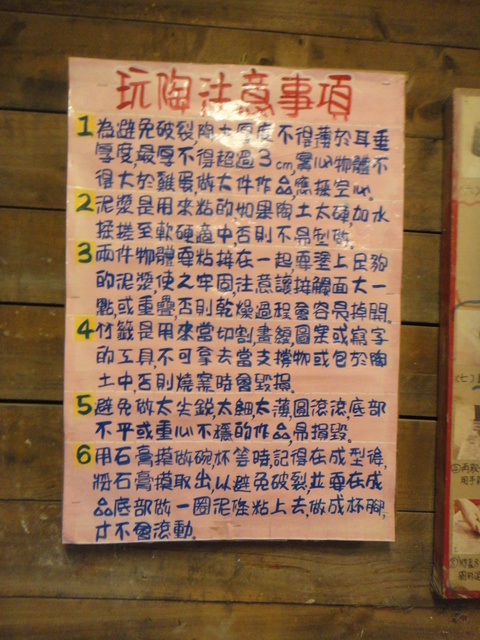 玩陶注意事項
1 為避免破裂陶土厚度不得薄於耳垂
厚度,最厚不得超過3cm,實心物體不
得大於雞蛋做大件作品,應挾空心。
2 泥漿是用來粘的如果陶土太硬,加水
揉搓至軟硬適中,否則不易製做。
3 兩件物體要粘接在一起,要塗上足夠
的泥漿使之牢固,注意讓接觸面大一
點,或重疊,否則乾燥過程會容易掉開。
4 竹籤是用來當切割,畫線,圖案或寫字
的工具,不可拿去當支撐物或包於陶
土中,否則燒窯時會毀損。
5 避免做太尖銳,太細太薄,圓滾滾,底部
不平或重心不穩的作品,易損毀。
6 用石膏模做碗杯等時,記得在成型後,
將石膏模取出,以避免破裂,並要在成
品底部做一圈泥條粘上去,做成杯腳,
才不會滾動。